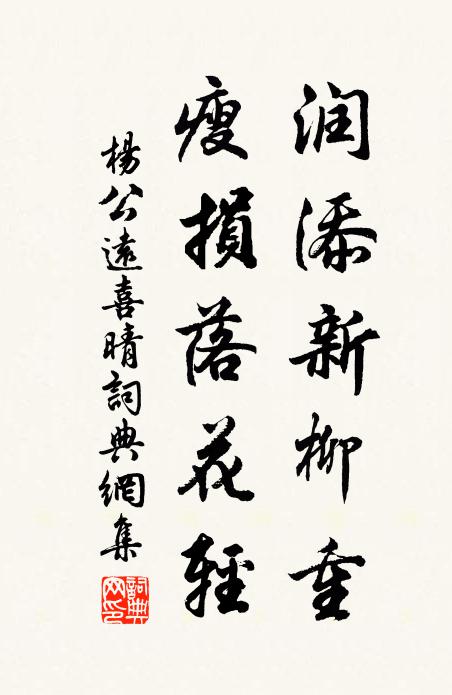 润添新柳重
瘦損落花輕
楊公遠喜晴詞典網集
詞典网印